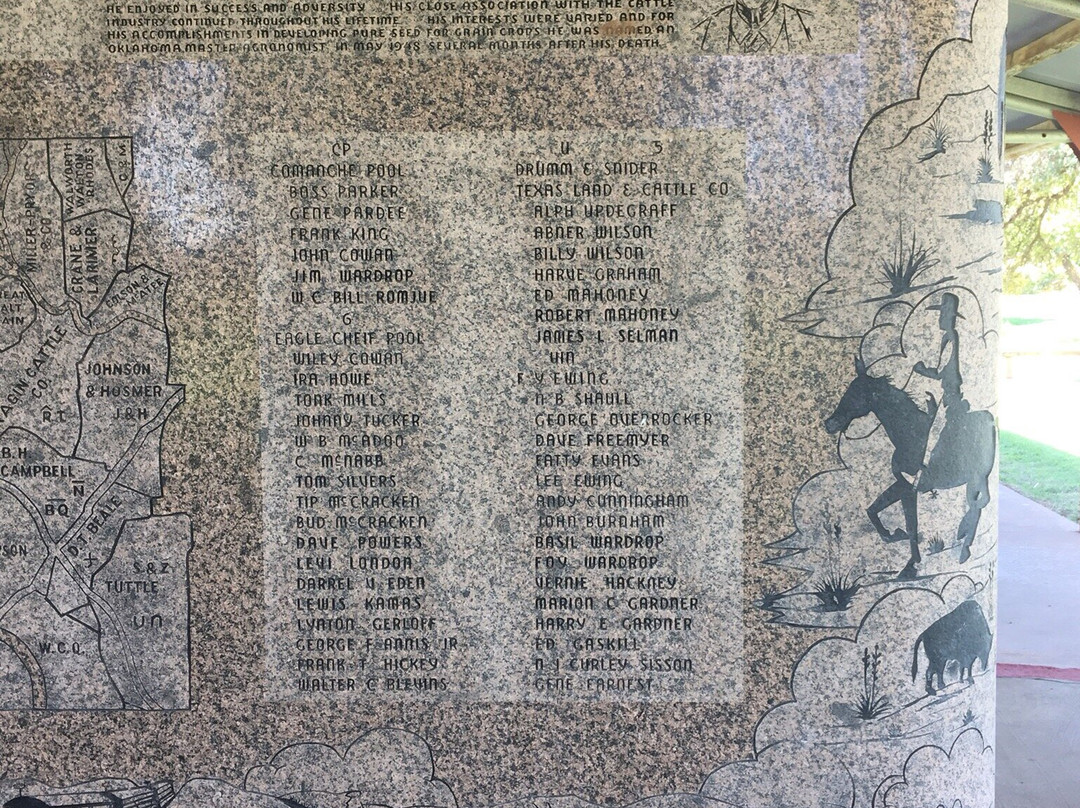 HE ENJOYED IN SUCCESS AND ADVERSITY HIS CLOSE ASSOCIATION WITH THE CATTLE
INDUSTRY CONTINUED THROUGHOUT HIS LIFETIME HIS INTERESTS WERE VARIED AND FOR
HIS ACCOMPLISHMENTS IN DEVELOPING PURE SEED FOR GRAIN CROPS HE WAS NAMED AN
OKLAHOMA MASTER AGRONOMIST IN MAY 1948 SEVERAL MONTHS AFTER HIS DEATH.
MILLER-PRYOR
& CO
CRANE &
LARIMER
WALWORTH
WALTON
RHODES
C & M
CATTLE
CO.
R T
JOHNSON
& HOSMER
J & H
B.H.
CAMPBELL
BQ
N
D.J. BEALE
X
S & Z
TUTTLE
U N
W.C.Q.
CP
COMANCHE POOL
BOSS PARKER
GENE PARDEE
FRANK KING
JOHN COWAN
JIM WARDROP
W C BILL ROMJUE
G
EAGLE CHEIF POOL
WILEY COWAN
IRA HOWE
TONK MILLS
JOHNNY TUCKER
W B McADOO
C McNABB
TOM SILVERS
TIP McCRACKEN
BUD McCRACKEN
DAVE POWERS
LEVI LONDON
DARREL V EDEN
LEWIS KAMAS
LYNTON GERLOFF
GEORGE F ANNIS JR
FRANK T HICKEY
WALTER C BLEVINS
U 5
DRUMM & SNIDER
TEXAS LAND & CATTLE CO
ALPH UPDEGRAFF
ABNER WILSON
BILLY WILSON
HARVE GRAHAM
ED MAHONEY
ROBERT MAHONEY
JAMES L SELMAN
F V EWING
N B SHAULL
GEORGE OVEROCKER
DAVE FREEMYER
FATTY EVANS
LEE EWING
ANDY CUNNINGHAM
JOHN BURNHAM
BASIL WARDROP
FOY WARDROP
VERNIE HACKNEY
MARION C GARDNER
HARRY E GARDNER
ED GASKILL
N J CURLEY SISSON
GENE EARNEST